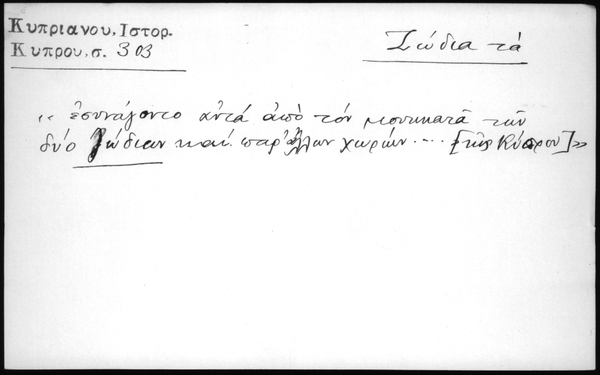 Κυπριανου, Ιστορ.
Κυπρου, σ. 303
Ζώδια τά
“ ἐσυνάγοντο αὐτά ἀπό τόν μουκατᾶ τῶν
δύο Ζώδιων καί παρ' ἄλλων χωρίων .... [τῆς Κύπρου] »